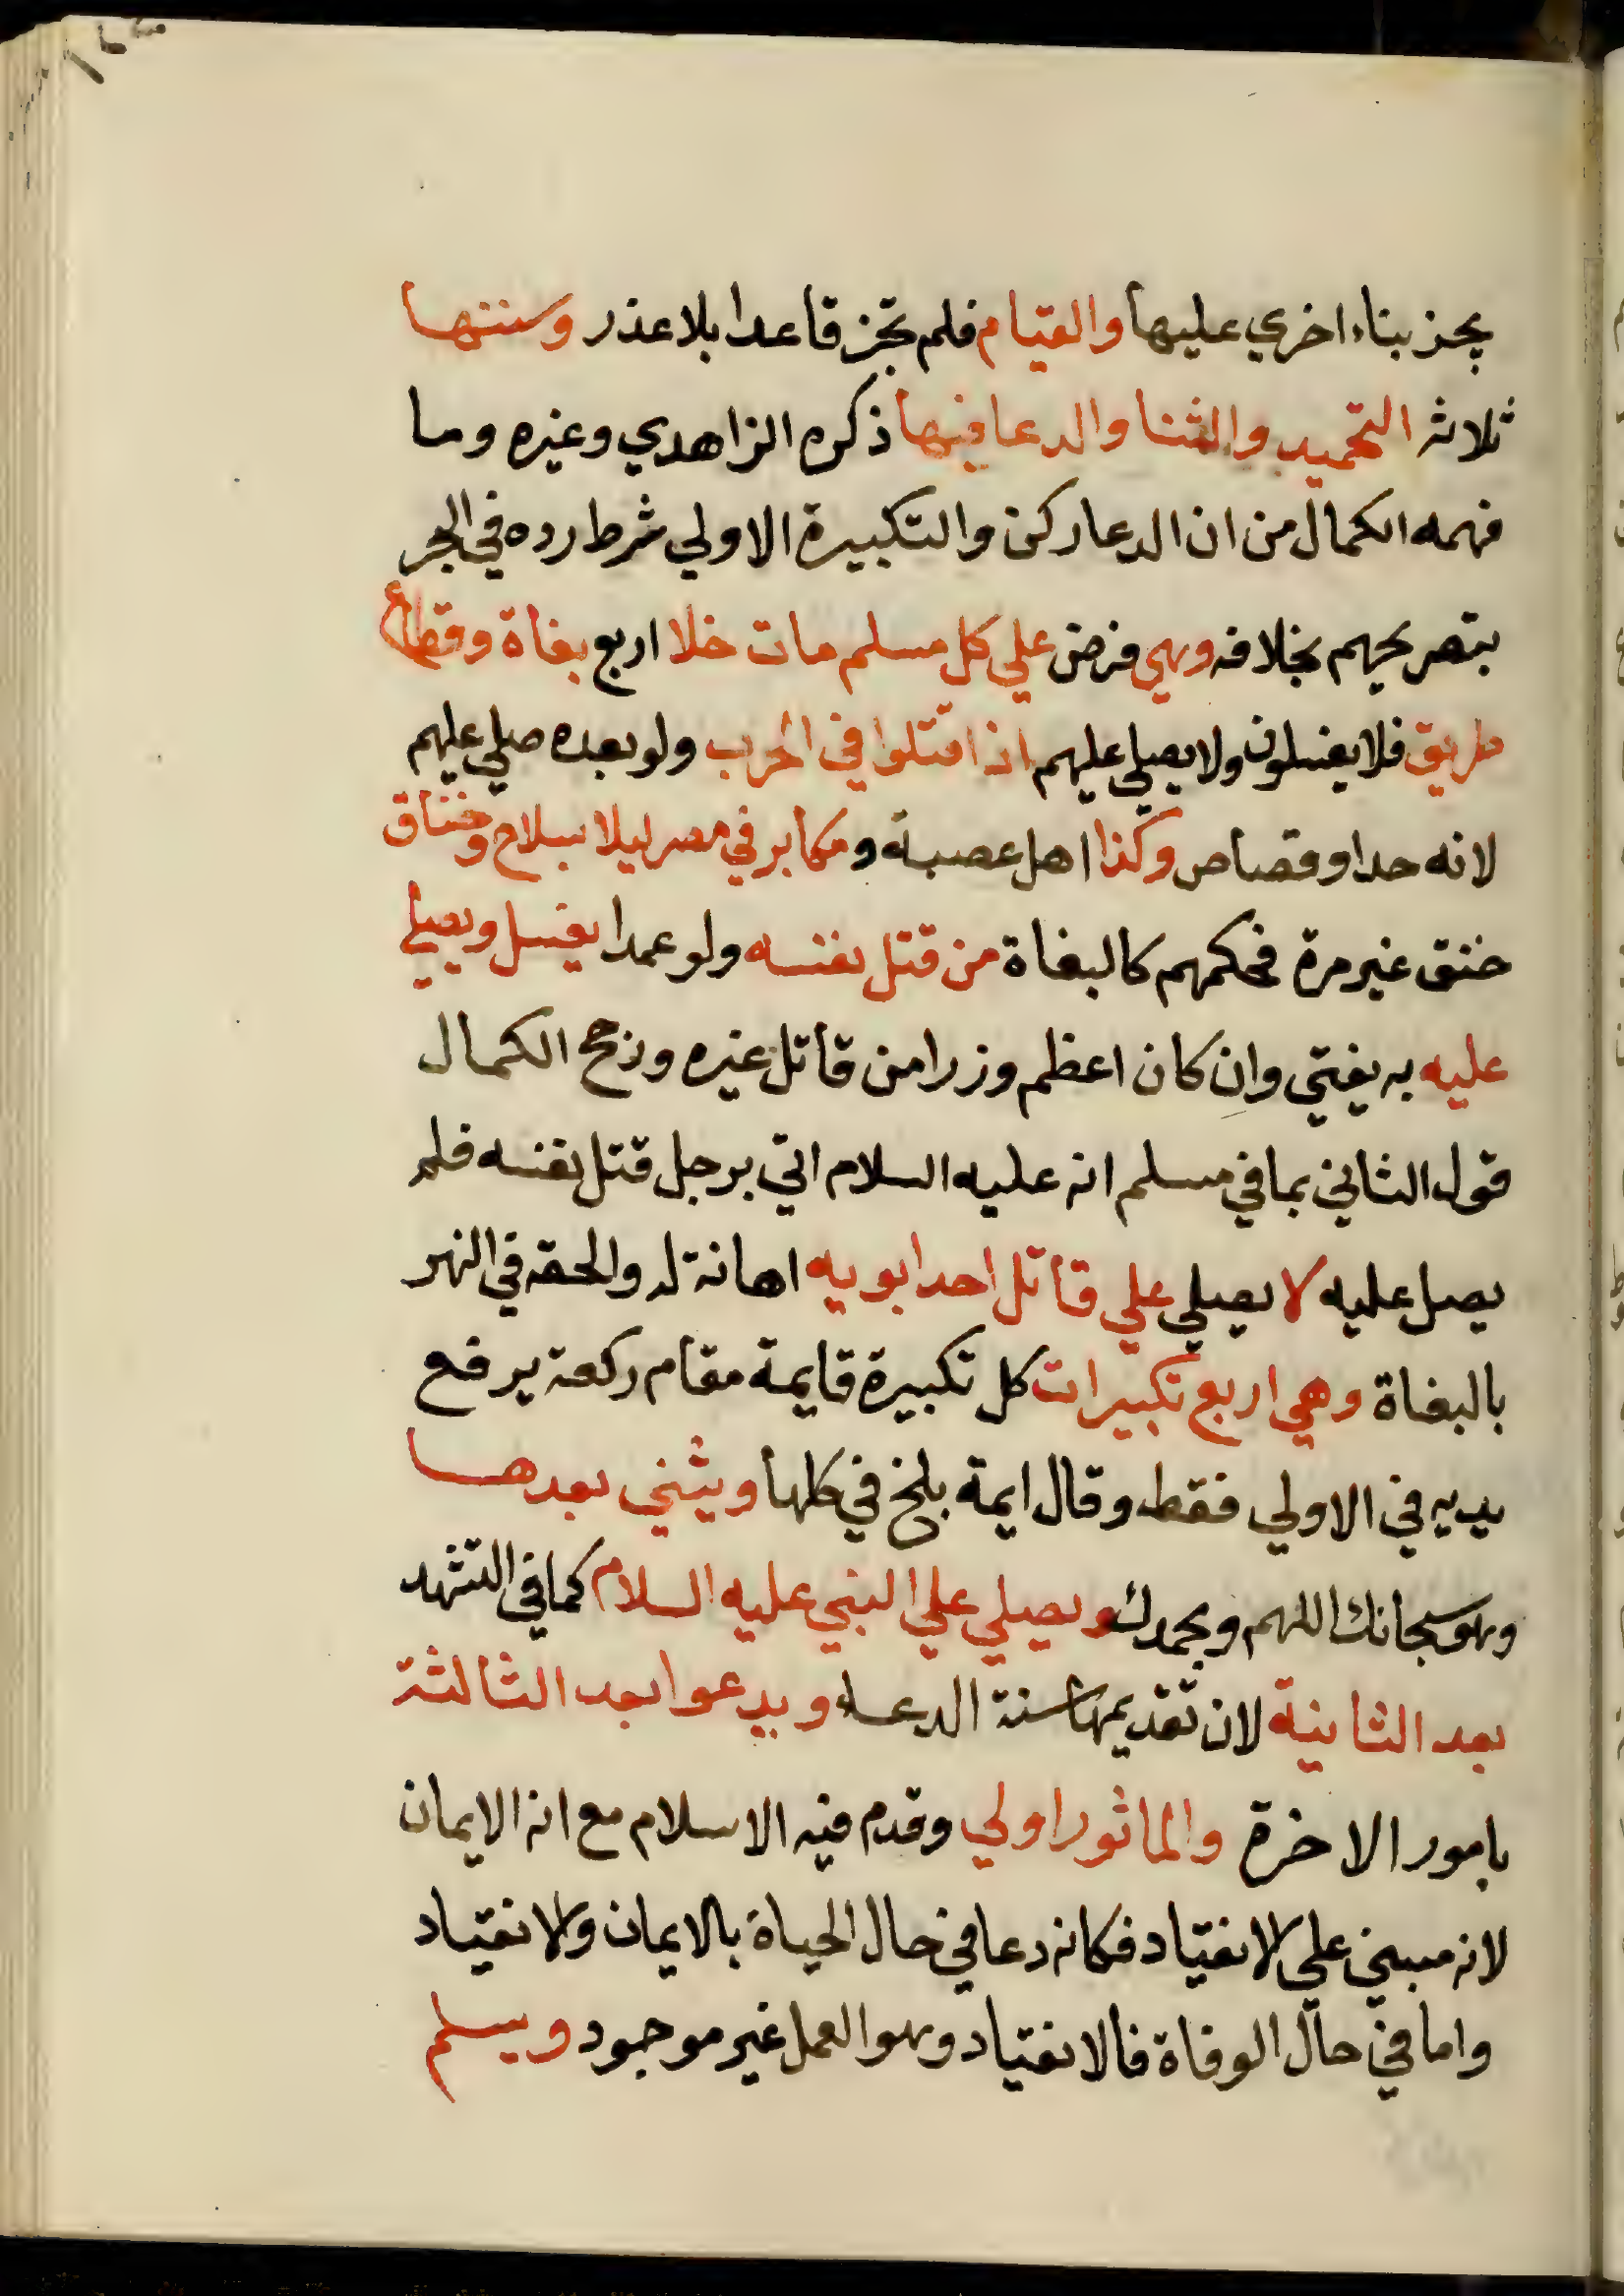 يجز بناء اخري عليها والقيام فلم تجز قاعدا بلا عذر وسننها
ثلاثه التحميد والثنا والدعا فيها ذكره الزاهدي وغيره وما
فهمه الكمال من ان الدعا ركن والتكبيرة الاولي شرط رده في البحر
بتصريحهم بخلافه وهي فرض علي كل مسلم مات خلا اربع بغاة وقطاع
طريق فلا يغسلون ولا يصلي عليهم اذا قتلوا في الحرب ولو بعده صلي عليهم
لانه حد او قصاص وكذا اهل عصبة ومكابر في مصر ليلا بسلاح وخناق
خنق غير مرة فحكمهم كالبغاة من قتل نفسه ولو عمدا يغسل ويصلي
عليه به يفتي وان كان اعظم وزرا من قاتل غيره ورجح الكمال
قول الثاني بما في مسلم انه عليه السلام اتي برجل قتل نفسه فلم
يصل عليه لا يصلي علي قاتل احد ابويه اهانة له والحقه في النهر
بالبغاة وهي اربع تكبيرات كل تكبيرة قايمة مقام ركعة يرفع
يديه في الاولي فقط وقال ايمة بلخ في كلها ويثني بعدها
وهو سبحانك اللهم وبحمدك ويصلي علي النبي عليه السلام كما في التشهد
بعد الثانية لان تقديمها سنة الدعاء ويدعوا بعد الثالثة
بامور الاخرة والماثور اولي وقدم فيه الاسلام مع انه الايمان
لانه مبني علي الانقياد فكانه دعا في حال الحياة بالايمان والانقياد
واما في حال الوفاة فالانقياد وهو العمل غير موجود ويسلم